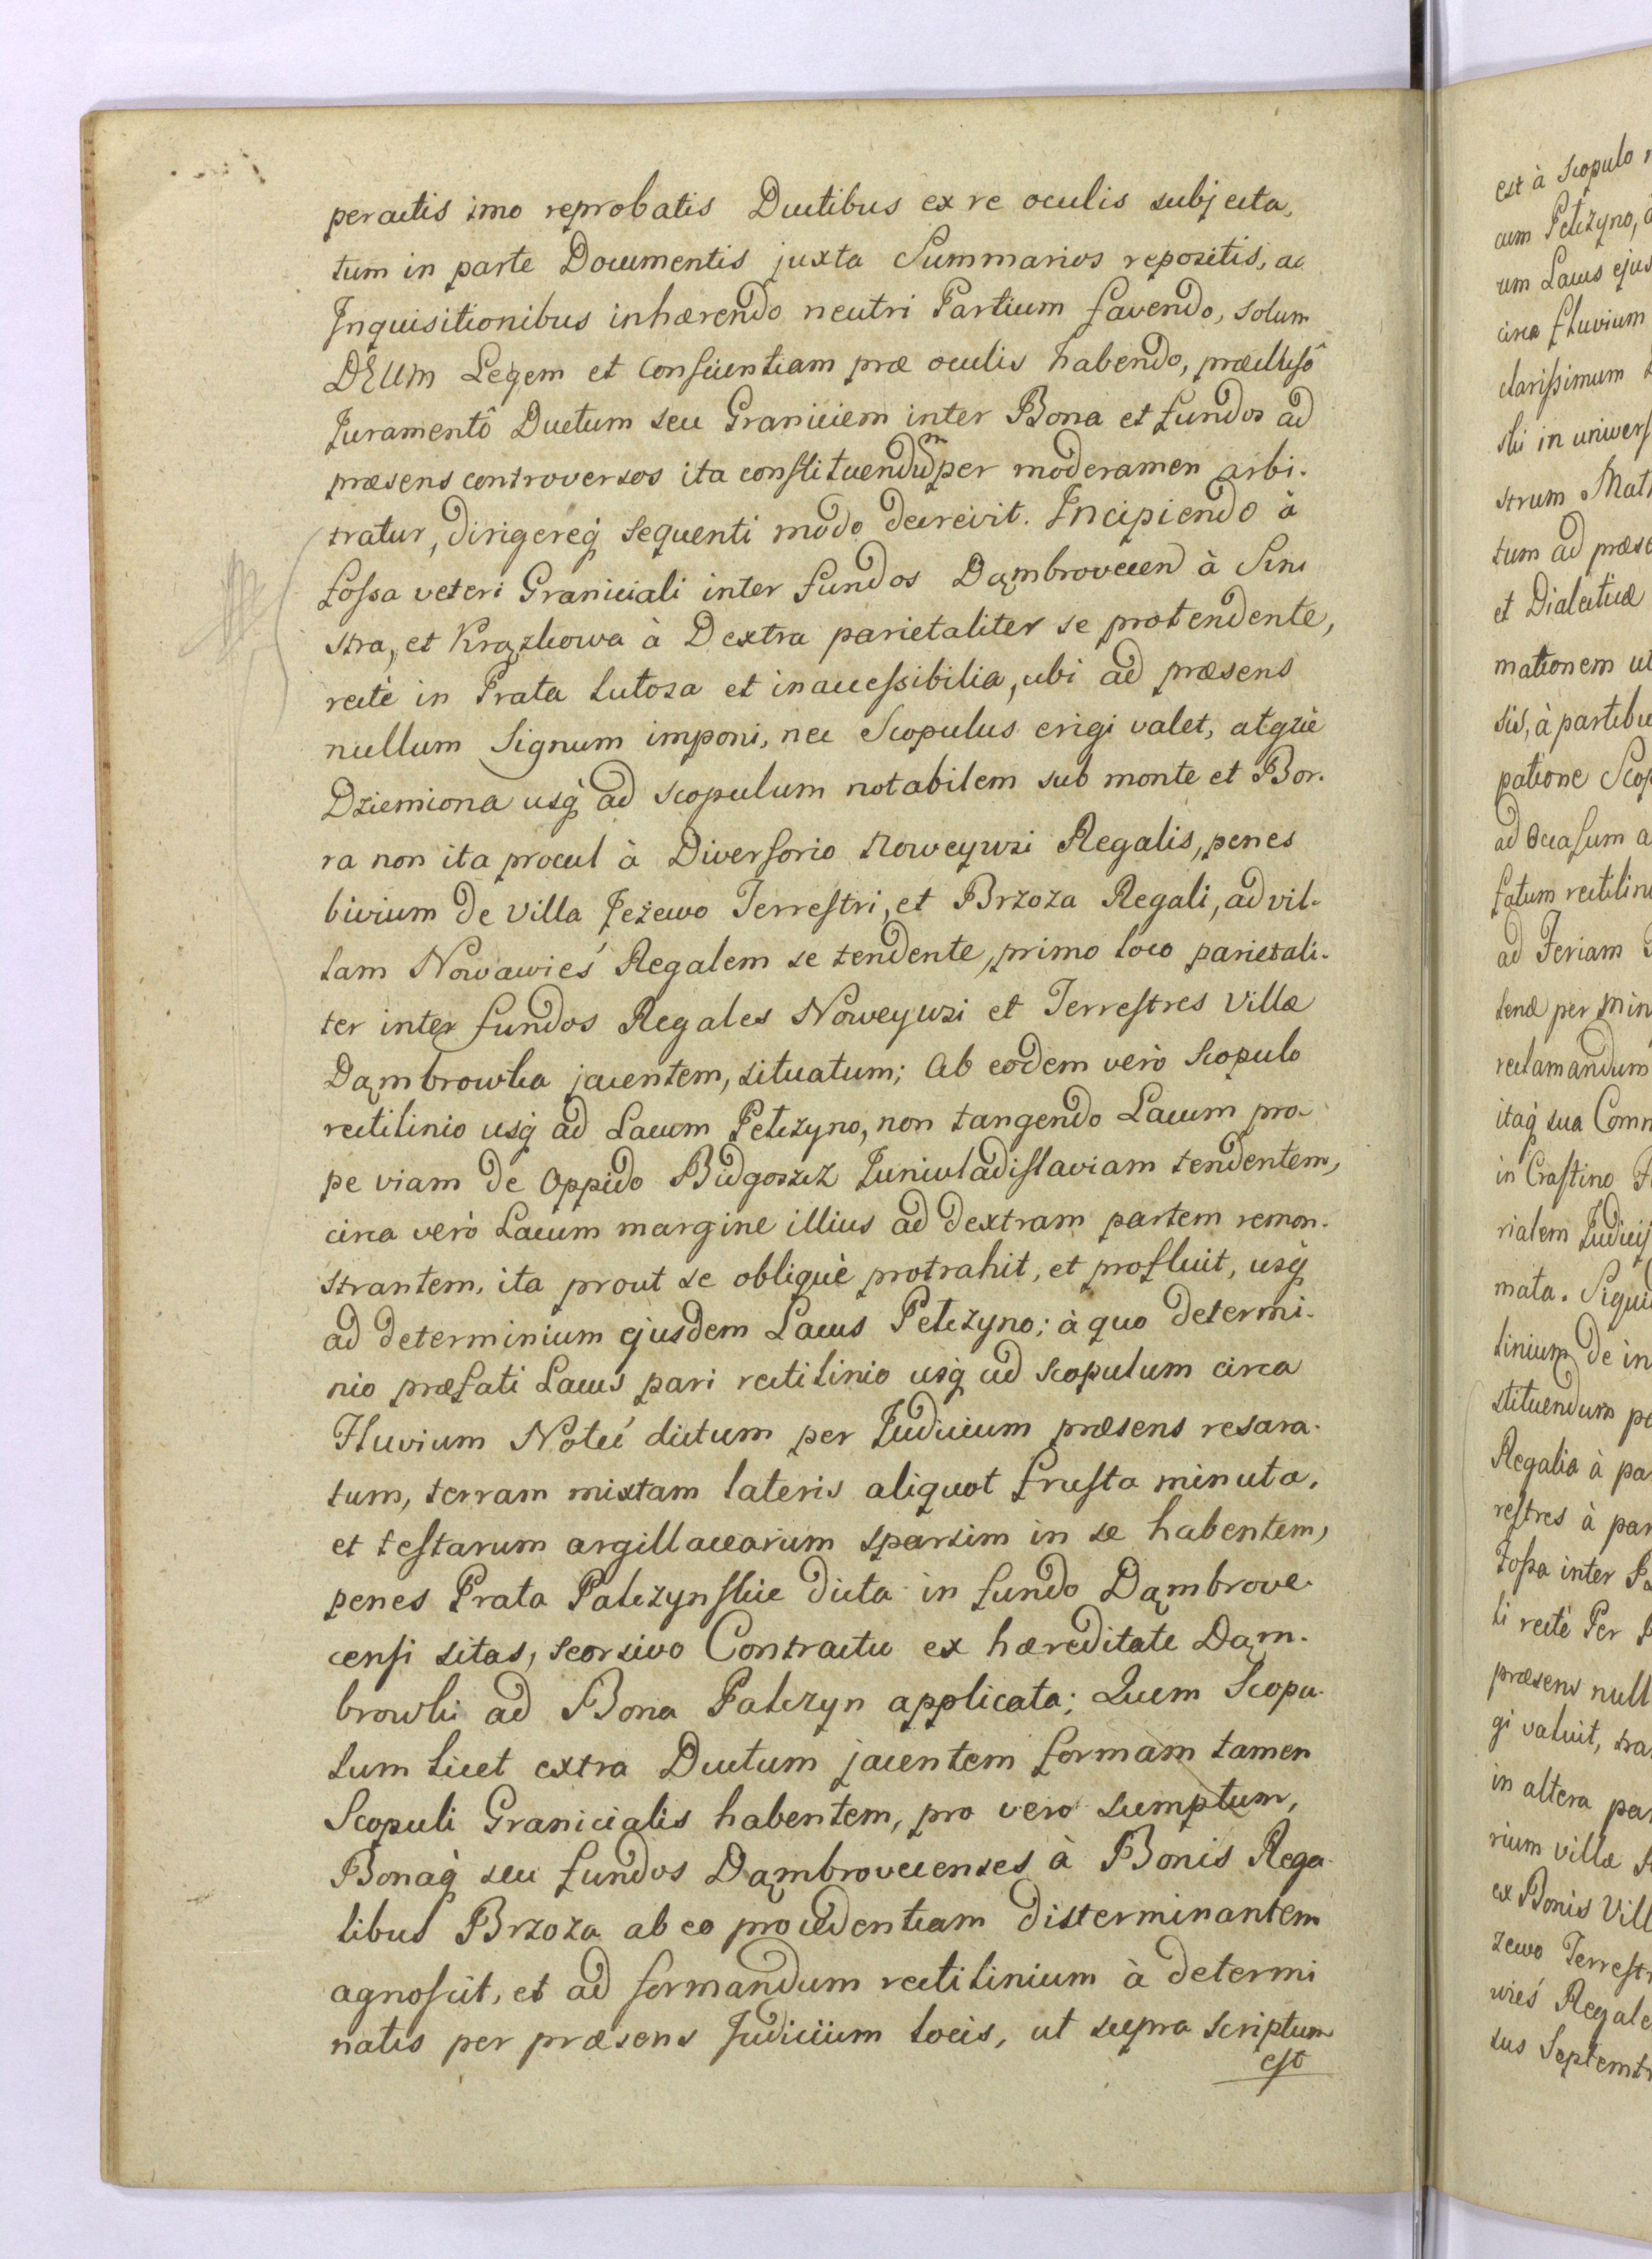 peractis imo reprobatis Ductibus ex re oculis subjecta,
tum in parte Documentis juxta Summarios repositis, ac
Inquisitionibus inhærendo neutri Partium favendo, solum
DEUM Legem et Conscientiam præ oculis habendo, præclusô
Juramentô Ductum seu Graniciem inter Bona et fundos ad
præsens controversos ita constituendum per moderamen arbi-
tratur, dirigereq́ sequenti modo decrevit. Incipiendo à
fossa veteri Graniciali inter fundos Dąmbrovecen à Sini
stra, et Krązkowa à Dextra parietaliter se protendente,
rectè in Prata lutosa et inaccessibilia, ubi ad præsens
nullum Signum imponi, nec Scopulus erigi valet, atq̀uè
Dziemiona usq́ ad scopulum notabilem sub monte et Bor-
ra non ita procul à Diversorio Noweywsi Regalis, penes
bivium de Villa Jeżewo Terrestri, et Brzoza Regali, ad vil-
lam Nowawieś Regalem se tendente, primo loco parietali-
ter inter fundos Regales Noweywsi et Terrestres Villæ
Dąmbrowka jacentem, situatum; Ab eodem verò Scopulo
rectilinio usq́ ad Lacum Pelczyno, non tangendo Lacum pro-
pe viam de Oppido Bidgoszcz Juniuladislaviam tendentem,
circa verò Lacum margine illius ad dextram partem remon-
strantem, ita prout se obliquè protrahit, et profluit, usq́
ad determinium ejusdem Lacus Pelczyno; à quo determi-
nio præfati Lacus pari rectilinio usq́ ad scopulum circa
Fluvium Noteć dictum per Judicium præsens resara-
tum, terram mixtam lateris aliquot frusta minuta,
et testarum argillacearum sparsim in se habentem,
penes Prata Palczynskie dicta in fundo Dąmbrove-
censi sitas, seorsivo Contractu ex hæreditate Dąm-
browki ad Bona Palczyn applicata; Quem Scopu-
lum licet extra Ductum jacentem formam tamen
Scopuli Granicialis habentem, pro vero sumptum,
Bonaq́ seu fundos Dąmbrovecenses à Bonis Rega-
libus Brzoza ab eo procedentiam disterminantem
agnoscit, et ad formandum rectilinium à determi
natis per præsens Judicium locis, ut supra scriptum
est
est à Scopulo
cum Pelczyno,
um Lacus ejus
circa fluvium
clarissimum
ski in univers
strum Mat
tum ad præse
et Dialecticæ
mationem ut
sis, à partibu
patione Scop
ad Occasum a
fatum rectilin
ad Feriam
tenæ per Min
reclamandum
itaq́ sua Com
in Crastino
rialem Judicij
mata. Siqui
linium de in
stituendum pe
Regalia à pa
restres à par
fossa inter
li rectè Per
præsens null
gi valuit, tra
in altera par
rium villæ
ex Bonis Vill
żewo Terrest
wieś Regale
sus Septemt